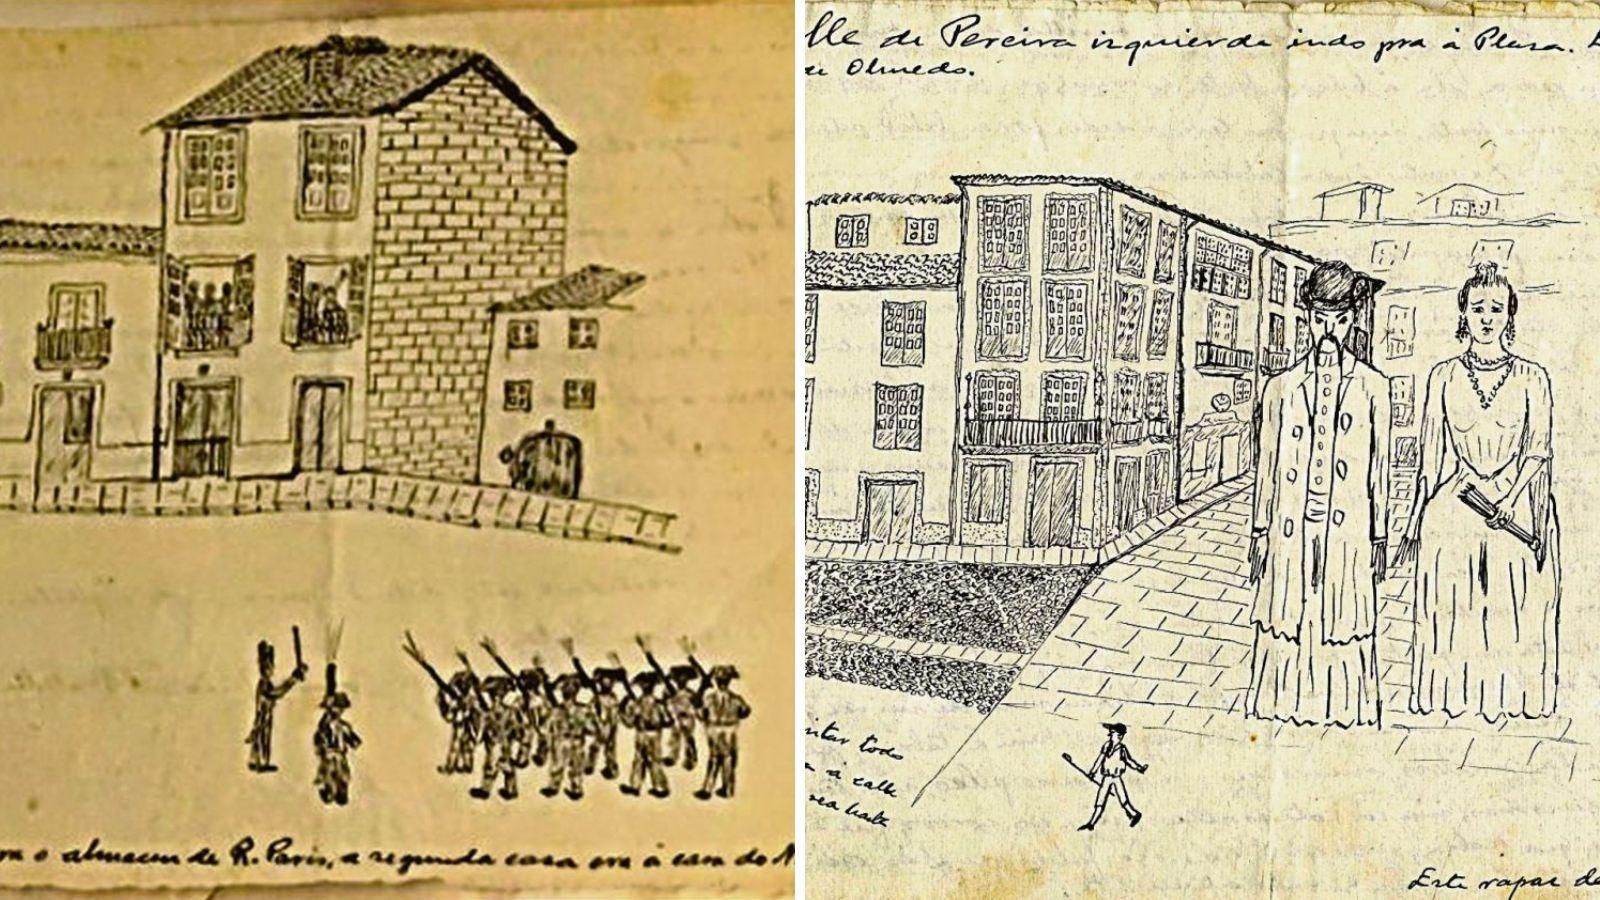 ra o almacen de R. Paris, a segunda casa era á casa do
lle de Pereira izquierda indo pra á Plasa.
Olmedo.
todo
á calle
Este rapas de